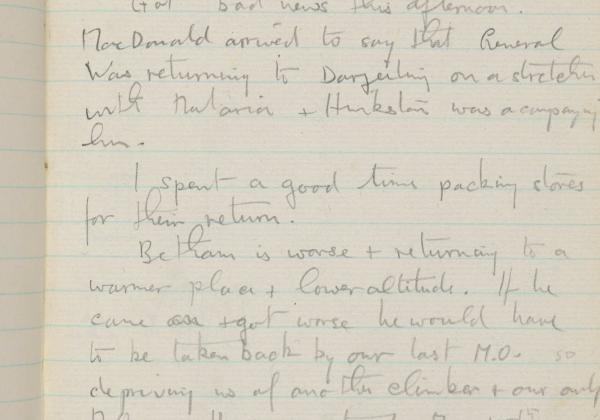 Got bad news this afternoon.
MacDonald arrived to say that General
Was returning to Darjeeling on a stretcher
with Malaria + Hinkston was acompanying
him.
I spent a good time packing stores
for their return.
Betham is worse + returning to a
warmer place + lower altitude. If he
came on + got worse he would have
to be taken back by our last M.O. so
depriving us of another climber + our only